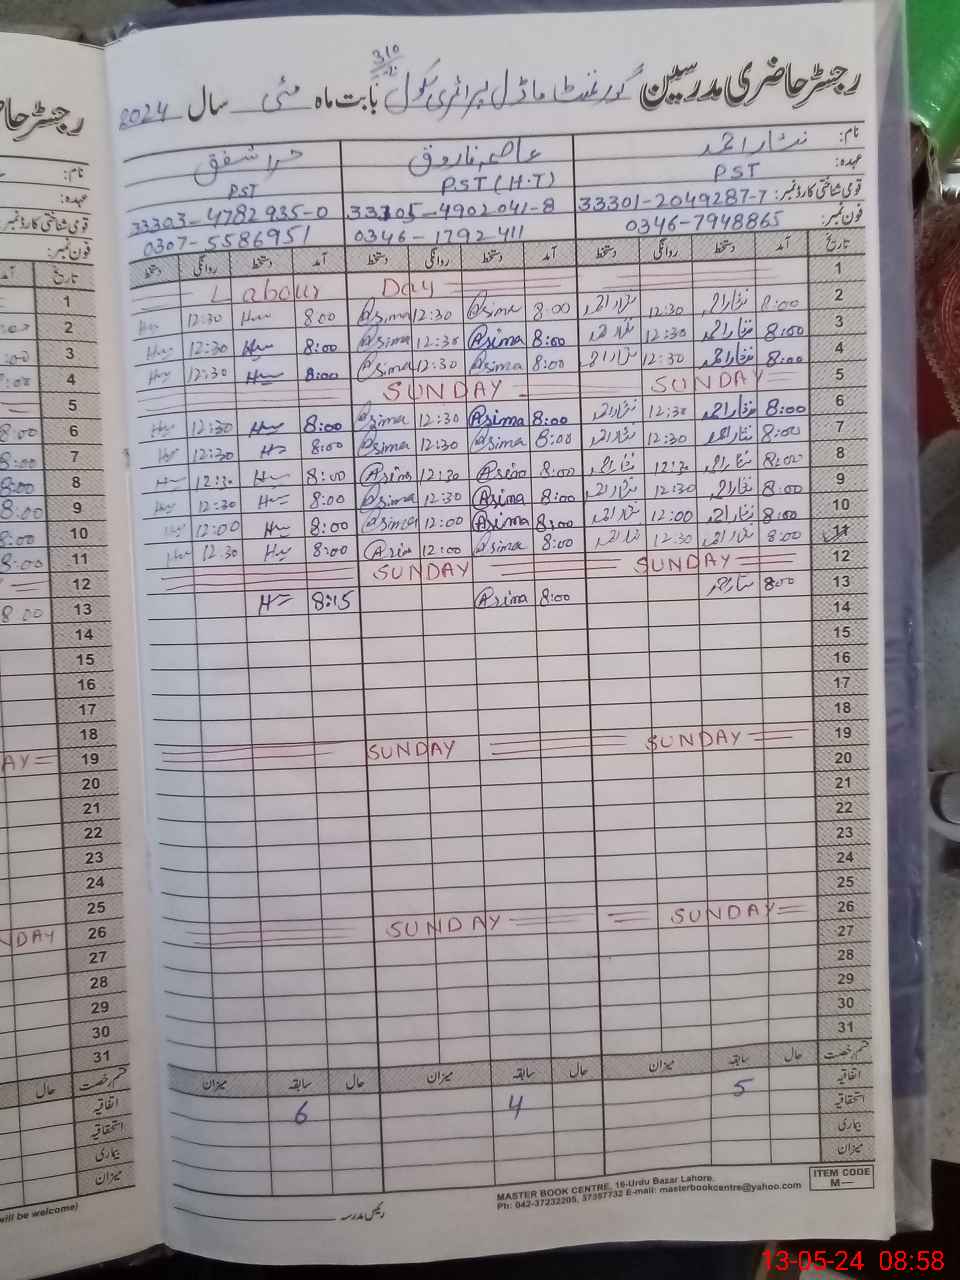 رجسٹر حاضری مدرسین گورنمنٹ ماڈل پرائمری سکول 310 بابت ماہ مئی سال 2024
نام: نثار احمد عاصمہ فاروق حرا شفق
عہدہ: PST PST (H.T) PST
قومی شناختی کارڈ نمبر: 33301-2049287-7 33105-4902041-8 33303-4782935-0
فون نمبر: 0346-7948865 0346-1792411 0307-5586951
تاریخ آمد دستخط روانگی دستخط آمد دستخط روانگی دستخط آمد دستخط روانگی دستخط
1 Labour Day
2 8:00 نثار احمد 12:30 نثار احمد 8:00 Asima 12:30 Asima 8:00 12:30
3 8:00 نثار احمد 12:30 نثار احمد 8:00 Asima 12:30 Asima 8:00 12:30
4 8:00 نثار احمد 12:30 نثار احمد 8:00 Asima 12:30 Asima 8:00 12:30
5 SUNDAY SUNDAY
6 8:00 نثار احمد 12:30 نثار احمد 8:00 Asima 12:30 Asima 8:00 12:30
7 8:00 نثار احمد 12:30 نثار احمد 8:00 Asima 12:30 Asima 8:00 12:30
8 8:00 نثار احمد 12:30 نثار احمد 8:00 Asima 12:30 Asima 8:00 12:30
9 8:00 نثار احمد 12:30 نثار احمد 8:00 Asima 12:30 Asima 8:00 12:30
10 8:00 نثار احمد 12:00 نثار احمد 8:00 Asima 12:00 Asima 8:00 12:00
11 8:00 نثار احمد 12:30 نثار احمد 8:00 Asima 12:00 Asima 8:00 12:30
12 SUNDAY SUNDAY
13 8:00 نثار احمد 8:00 Asima 8:15
14
15
16
17
18
19 SUNDAY SUNDAY
20
21
22
23
24
25
26 SUNDAY SUNDAY
27
28
29
30
31
قسم رخصت حال سابقہ میزان حال سابقہ میزان حال سابقہ میزان
اتفاقیہ 5 4 6
استحقاقیہ
بیماری
میزان
رئیس مدرسہ
MASTER BOOK CENTRE, 16-Urdu Bazar Lahore.
Ph: 042-37232205, 37357732 E-mail: masterbookcentre@yahoo.com
ITEM CODE
M—
will be welcome)
13-05-24 08:58